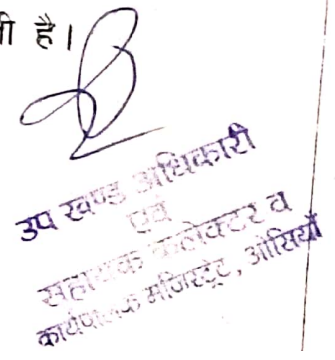 ी है।
उप खण्ड अधिकारी
एवं
सहायक कलेक्टर व
कार्यपालक मजिस्ट्रेट, ओसियाँ